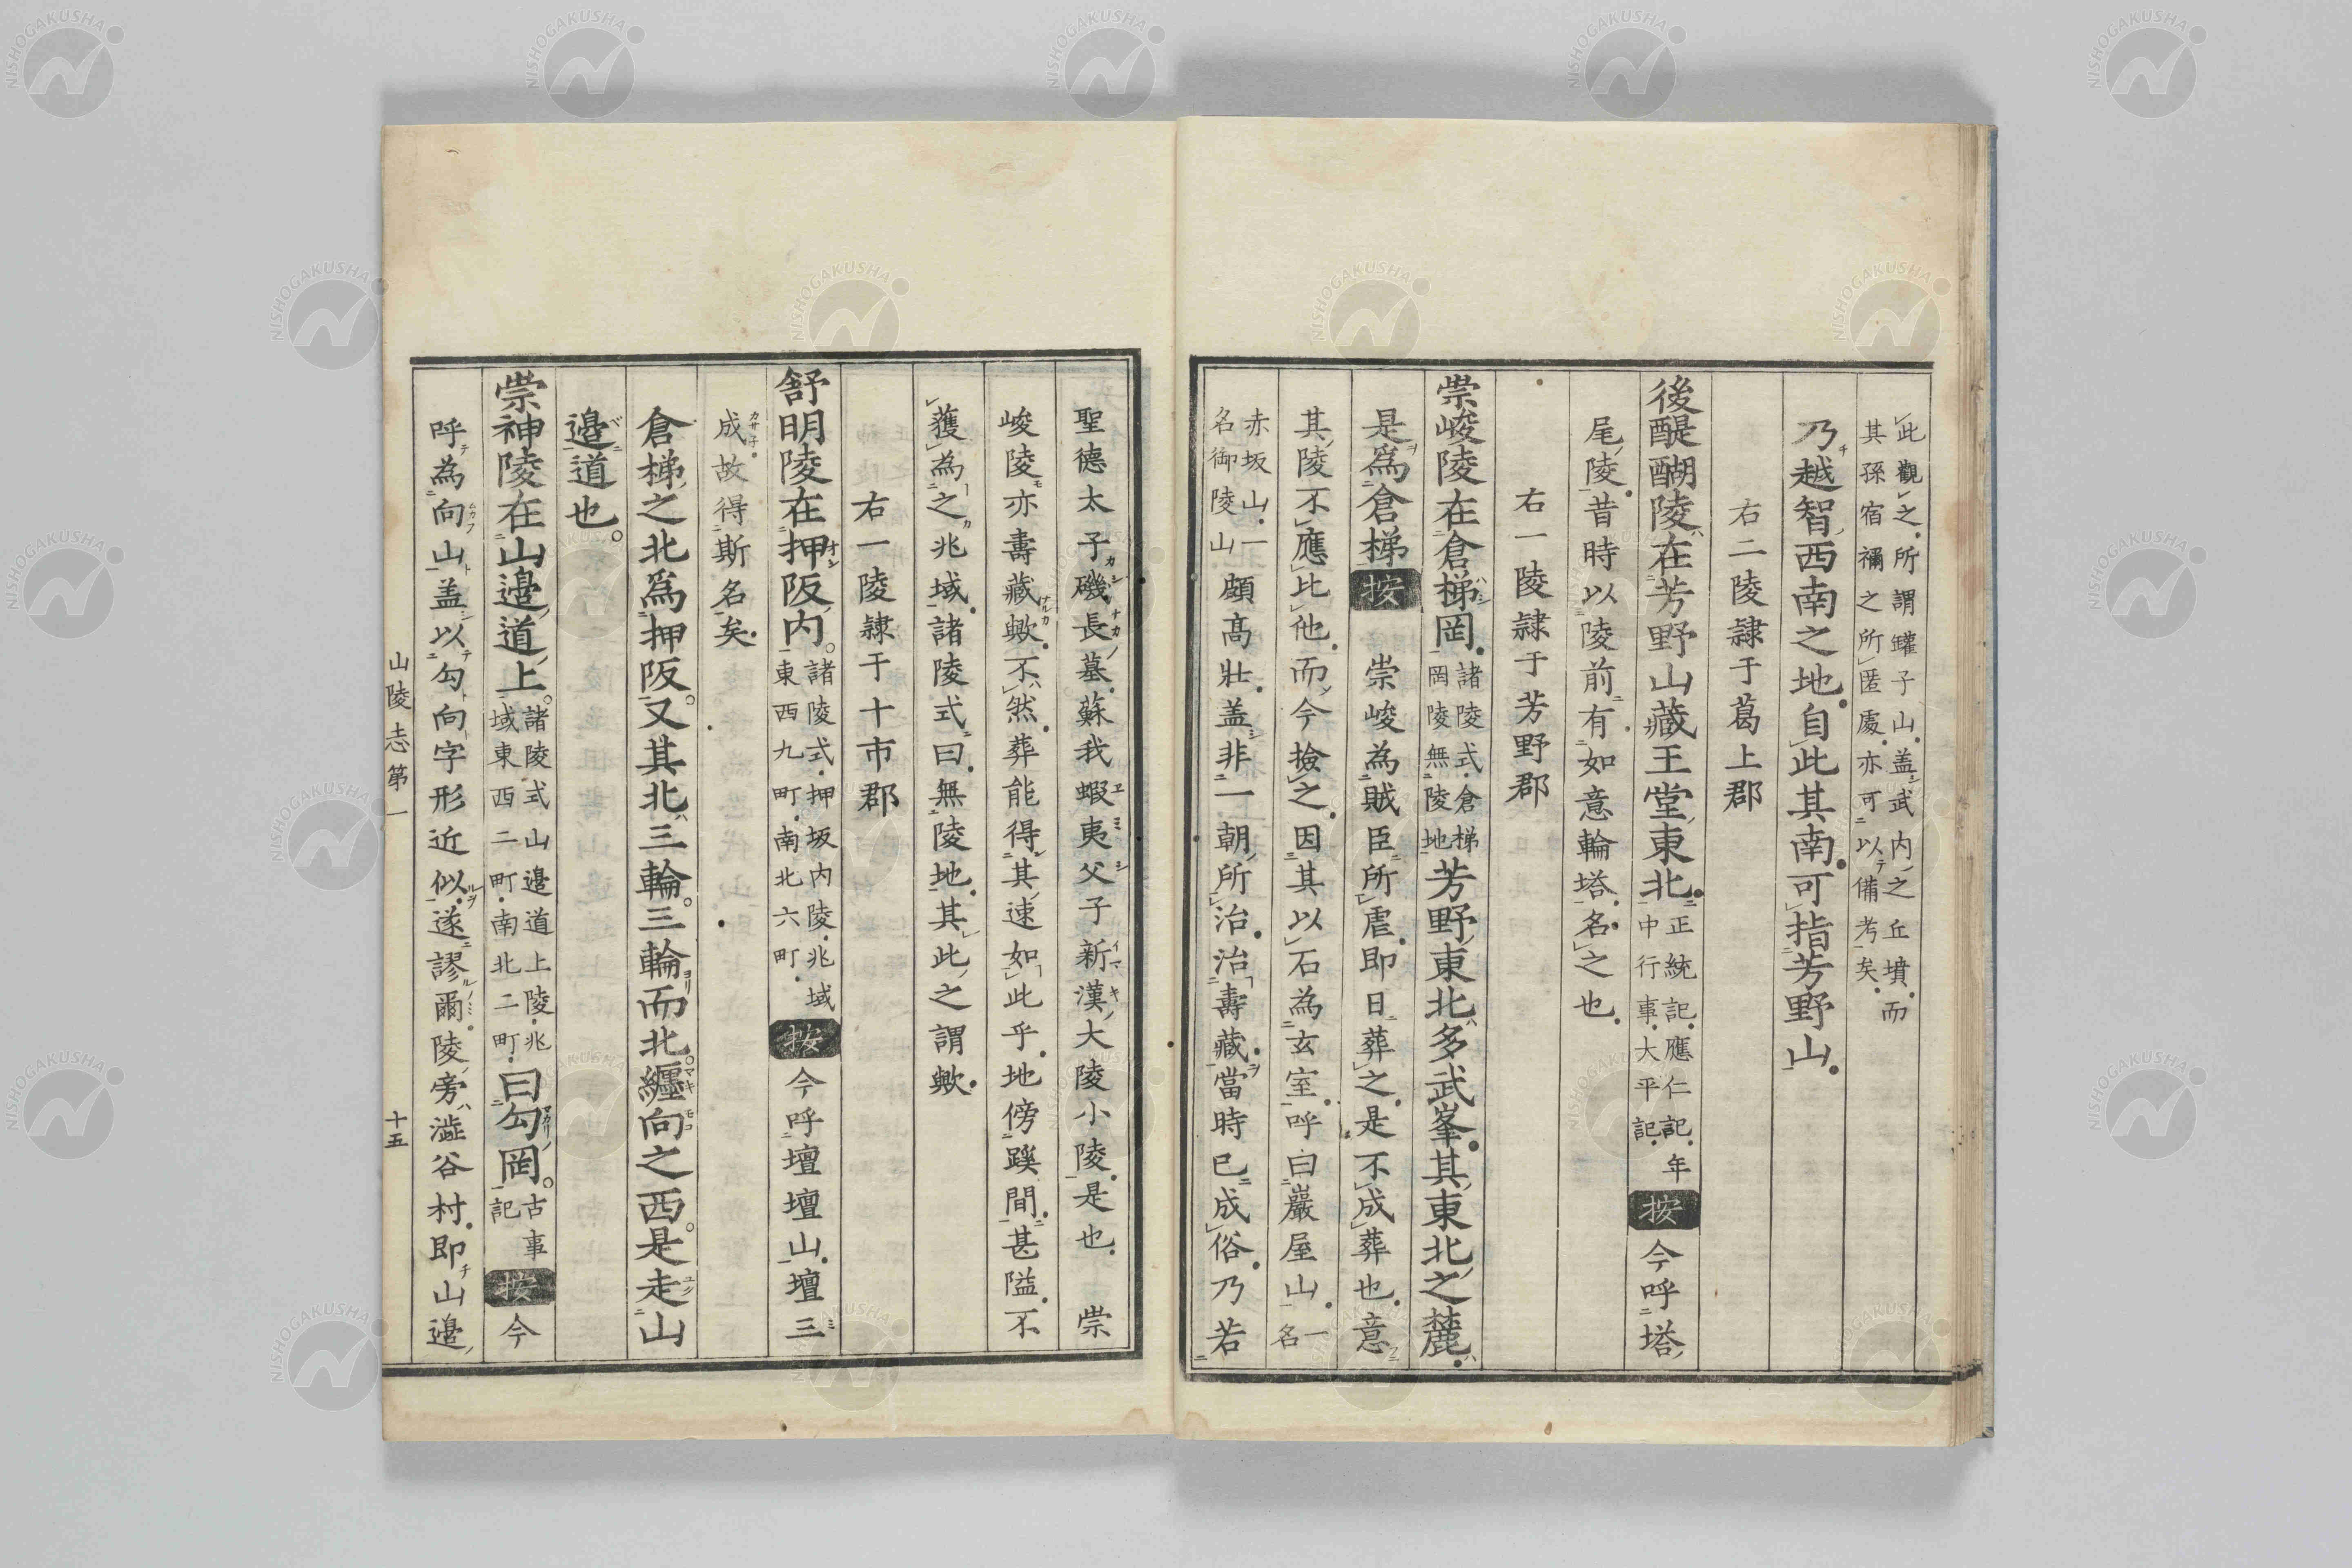 此觀之所謂罐子山盖武内之丘墳而
其孫宿禰之所匿處亦可以備考矣
乃越智西南之地自此其南可指芳野山
右二陵隷于葛上郡
後醍醐陵在芳野山藏王堂東北正統記應仁記年
中行事大平記按今呼塔
尾陵昔時以陵前有如意輪塔名之也
右一陵隷于芳野郡
崇峻陵在倉梯岡諸陵式倉梯
岡陵無陵地芳野東北多武峯其東北之麓
是爲倉梯按崇峻為賊臣所虐即日葬之是不成葬也意
其陵不應比他而今撿之因其以石為玄室呼曰巖屋山一名
赤坂山一
名御陵山頗髙壯盖非一朝所治治壽藏當時已成俗乃若
聖德太子磯長墓蘇我蝦夷父子新漢大陵小陵是也崇
峻陵亦壽藏歟不然葬能得其速如此乎地傍蹊間甚隘不
獲為之兆域諸陵式曰無陵地其此之謂歟
右一陵隷于十市郡
舒明陵在押阪内諸陵式押坂内陵兆域
東西九町南北六町按今呼壇壇山壇三
成故得斯名矣
倉梯之北爲押阪又其北三輪三輪而北纒向之西是走山
邉道也
崇神陵在山邉道上諸陵式山邉道上陵兆
域東西二町南北二町曰勾岡古事
記按今
呼為向山盖以勾向字形近似遂謬爾陵旁澁谷村即山邉
山陵志第一
十五
NISHOGAKUSHA